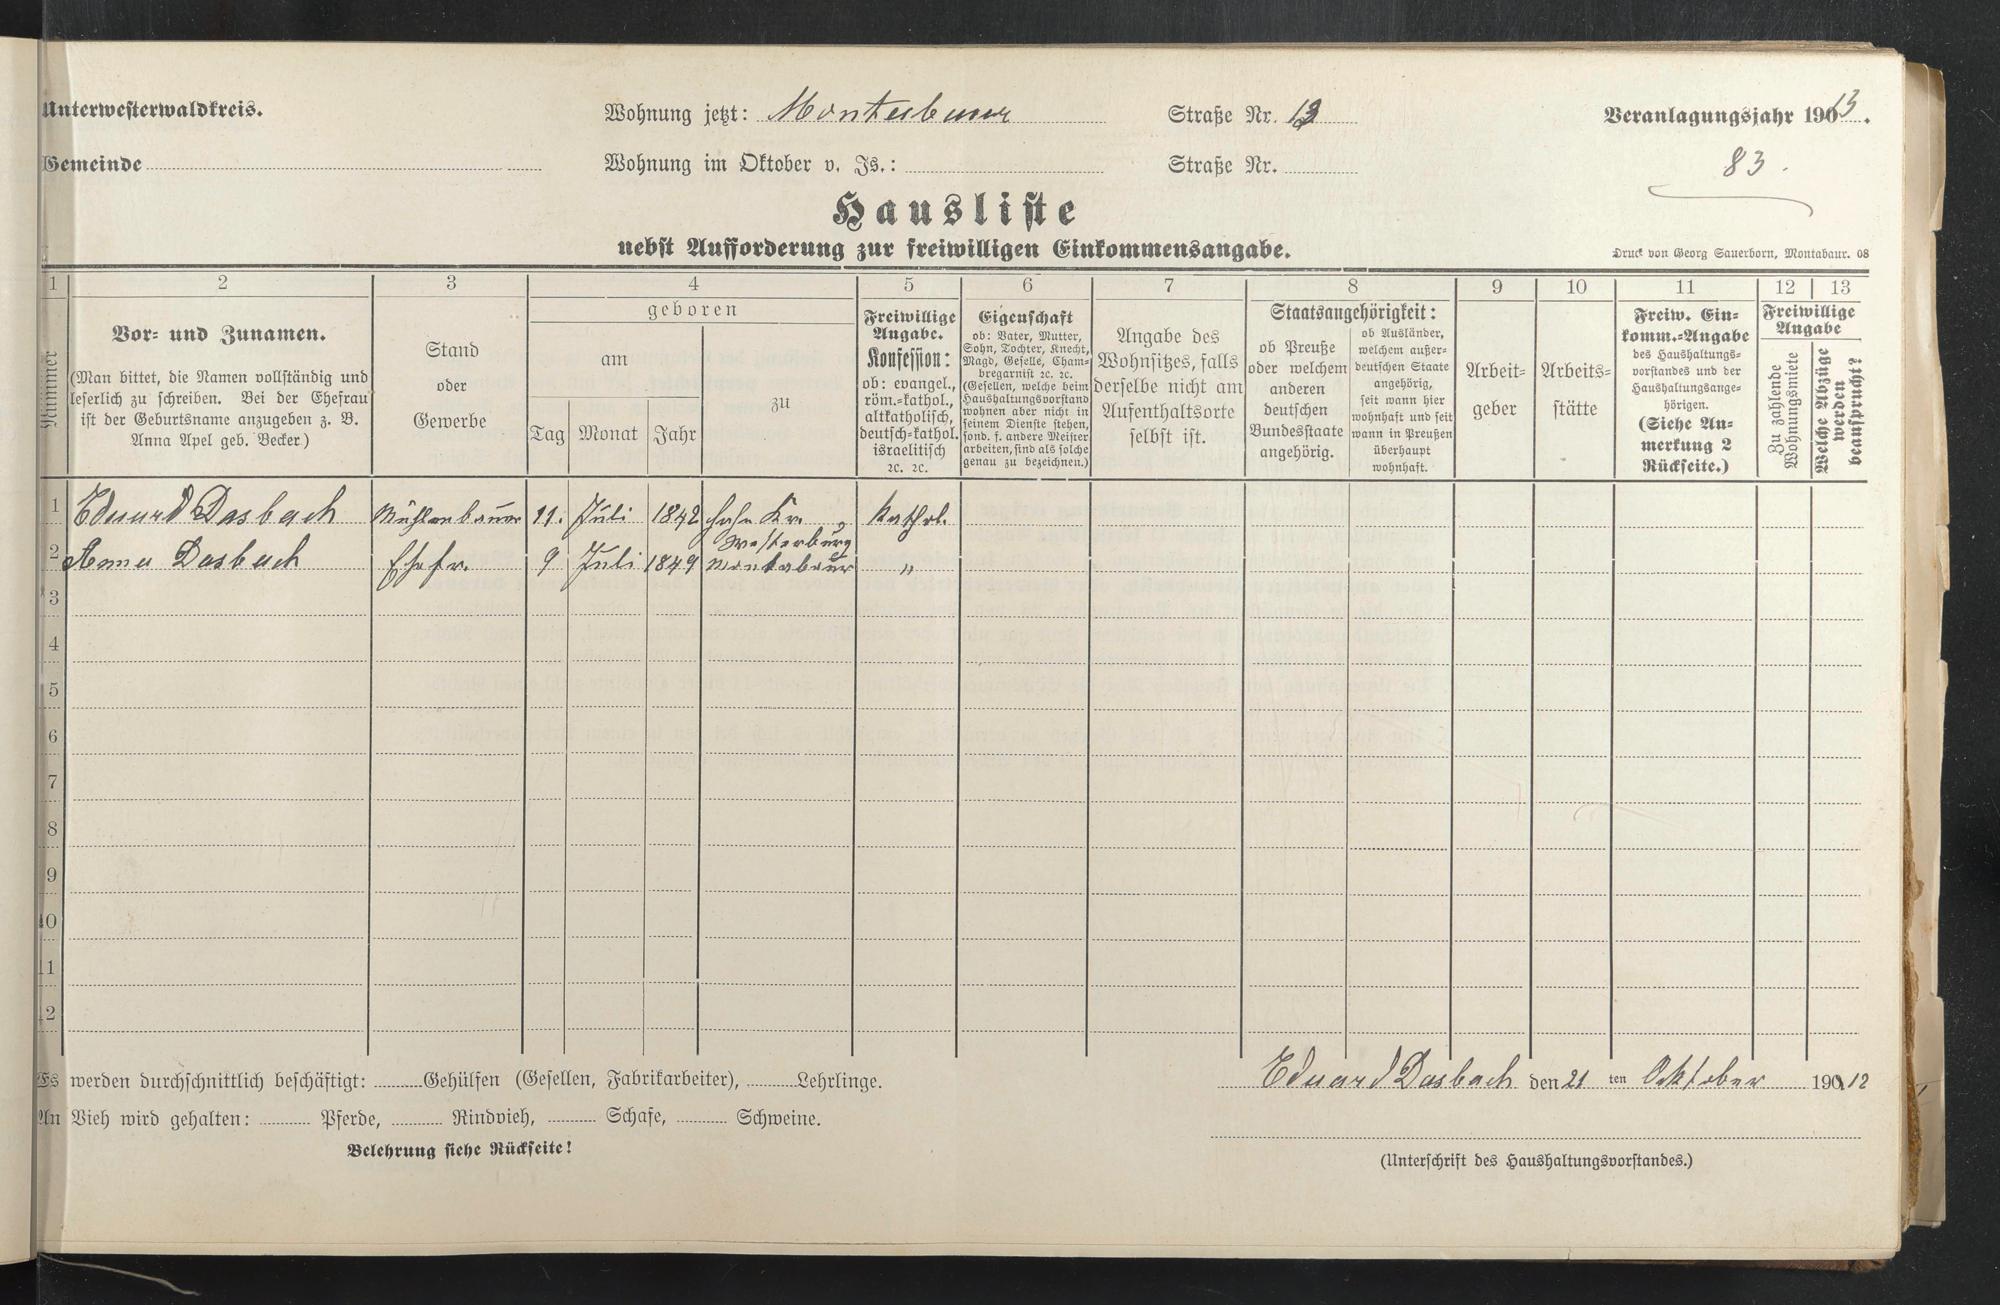 Unterwesterwaldkreis.
Wohnung jetzt: Montabaur Straße Nr.
Veranlagungsjahr 19013.
Gemeinde
Wohnung im Oktober v. Js.: Straße Nr.
83.
Hausliste
nebst Aufforderung zur freiwilligen Einkommensangabe.
Druck von Georg Sauerborn, Montabaur. 08
1 2 3 4 5 6 7 8 9 10 11 12 13
Nummer
Vor- und Zunamen.
(Man bittet, die Namen vollständig und
leserlich zu schreiben. Bei der Ehefrau
ist der Geburtsname anzugeben z. B.
Anna Apel geb. Becker)
Stand
oder
Gewerbe
geboren
am
Tag Monat Jahr
zu
Freiwillige
Angabe.
Konfession:
ob: evangel.,
röm.-kathol.,
altkatholisch,
deutsch-kathol.
israelitisch
ꝛc. ꝛc.
Eigenschaft
ob: Vater, Mutter,
Sohn, Tochter, Knecht,
Magd, Geselle, Cham-
bregarnist ꝛc. ꝛc.
(Gesellen, welche beim
Haushaltungsvorstand
wohnen aber nicht in
seinem Dienste stehen,
sond. f. andere Meister
arbeiten, sind als solche
genau zu bezeichnen.)
Angabe des
Wohnsitzes, falls
derselbe nicht am
Aufenthaltsorte
selbst ist.
Staatsangehörigkeit:
ob Preuße
oder welchem
anderen
deutschen
Bundesstaate
angehörig.
ob Ausländer,
welchem außer-
deutschen Staate
angehörig,
seit wann hier
wohnhaft und seit
wann in Preußen
überhaupt
wohnhaft.
Arbeit-
geber
Arbeits-
stätte
Freiw. Ein-
komm.-Angabe
des Haushaltungs-
vorstandes und der
Haushaltungsange-
hörigen.
(Siehe An-
merkung 2
Rückseite.)
Freiwillige
Angabe
Zu zahlende
Wohnungsmiete
Welche Abzüge
werden
beansprucht?
1 Eduard Dasbach Mühlenbauer 11. Juli 1842 Hahn Kr. Westerburg Kathol.
2 Anna Dasbach Ehefr. 9 Juli 1849 Montabaur "
3
4
5
6
7
8
9
10
11
12
Es werden durchschnittlich beschäftigt: Gehülfen (Gesellen, Fabrikarbeiter), Lehrlinge.
Eduard Dasbach den 21 ten Oktober 190 12
An Vieh wird gehalten: Pferde, Rindvieh, Schafe, Schweine.
Belehrung siehe Rückseite!
(Unterschrift des Haushaltungsvorstandes.)